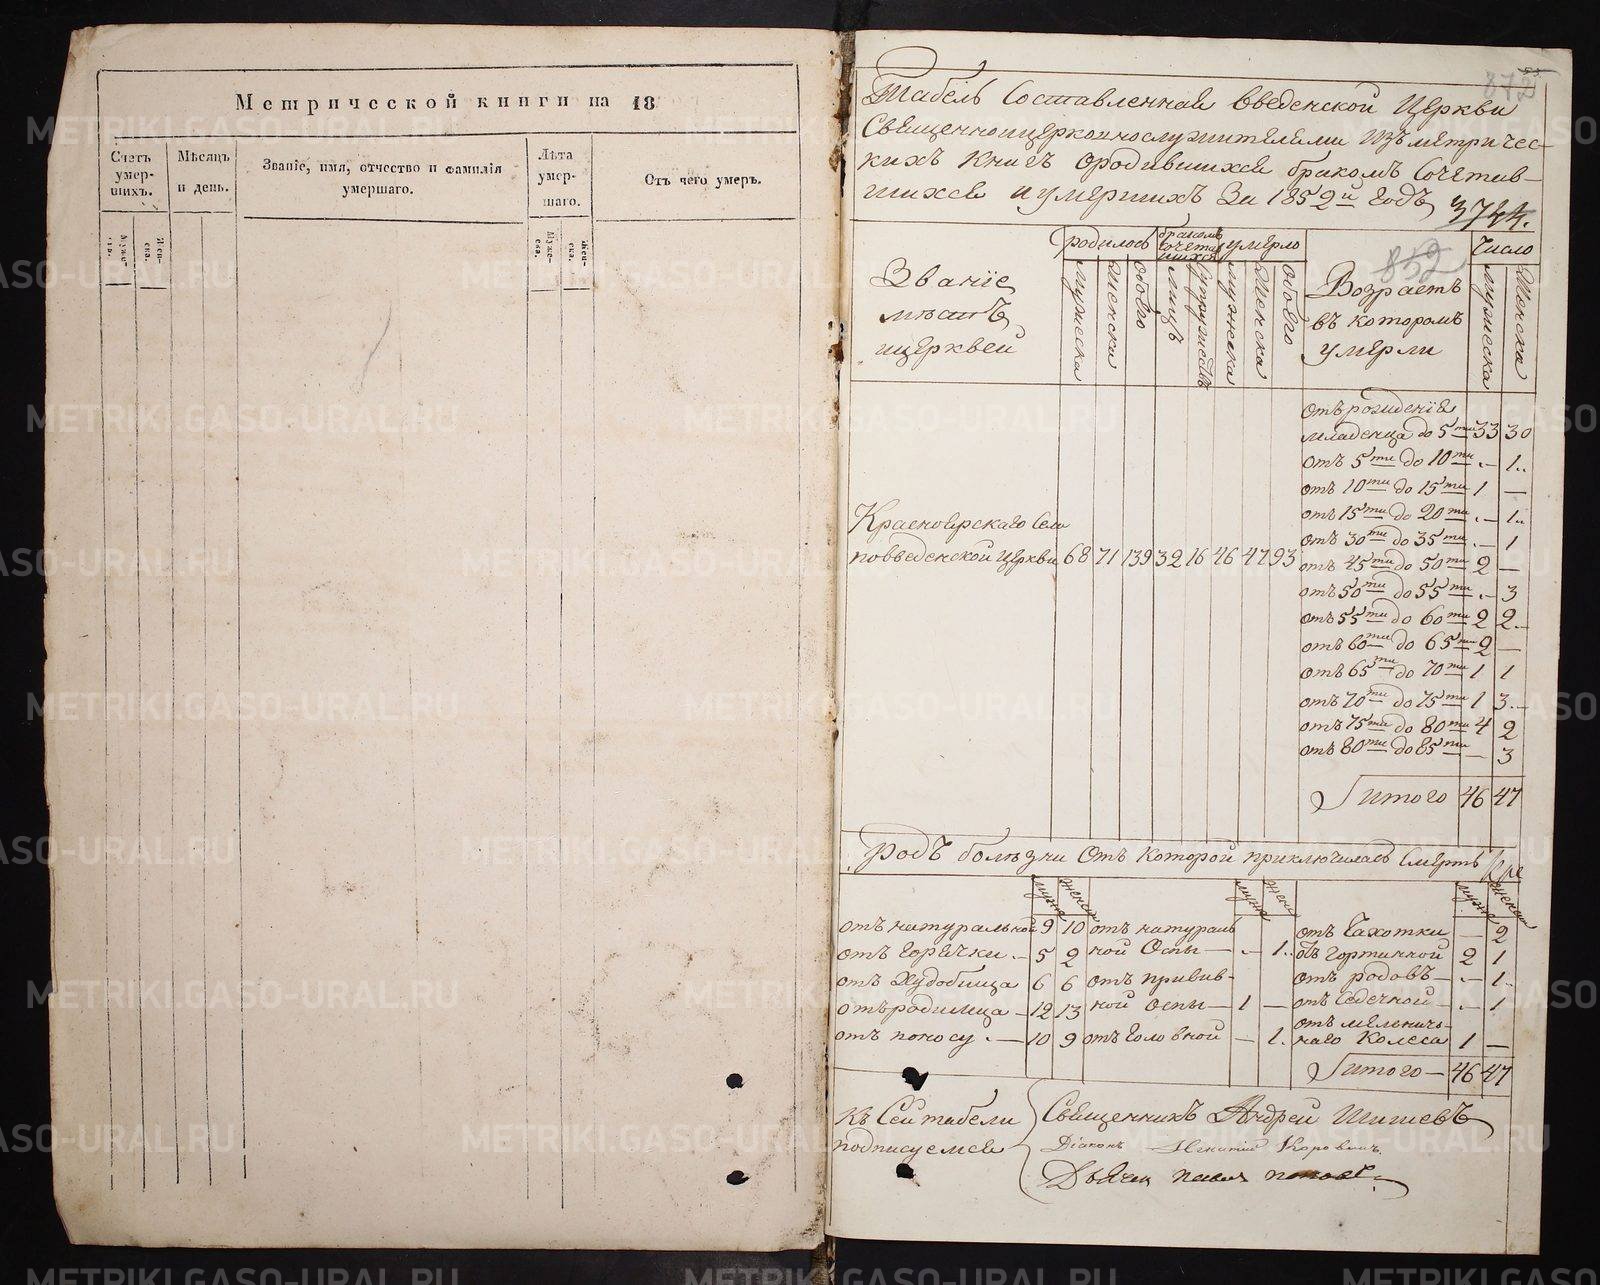 Метрической книги на 18
Счетъ умерших.
Мѣсяцъ и день.
Званіе, имя, отчество и фамилія умершаго.
Лѣта умершаго.
Отъ чего умеръ.
Табель Составленная Введенской Церкви
Священноцерковнослужителями Изъ метричес-
кихъ Книгъ Ородившихся бракомъ Сочетав-
шихся и умершихъ За 1852й Годъ
Званіе мѣстъ ицерквей
родилось
мужеска
Женска
обоего
бракомъ сочетавшихся
лицъ
супружествъ
умерло
мужеска
Женска
обоего
852
Возрастъ въ которомъ умерли
Число
мужеска
Женска
отъ рожденія
младенца до 5ти 33 30
отъ 5ти до 10ти - 1
отъ 10ти до 15ти 1 -
отъ 15ти до 20ти - 1
Красноярскаго Села
отъ 30ти до 35ти - 1
повведенской Церкви 68 71 139 32 16 46 47 93
отъ 45ти до 50ти 2 -
отъ 50ти до 55ти - 3
отъ 55ти до 60ти 2 2
отъ 60ти до 65ти 2 -
отъ 65ти до 70ти 1 1
отъ 70ти до 75ти 1 3
отъ 75ти до 80ти 4 2
отъ 80ти до 85ти - 3
Итого 46 47
Родъ болѣзни Отъ Которой приключилась Смерть
отъ натуральной 9 10 отъ натураль отъ Чахотки - 2
отъ Горячки - 5 2 ной Оспы - - 1 отъ Гортанной 2 1
отъ Худобища 6 6 отъ привив- отъ родовъ - - 1
отъ родимца - 12 13 ной Оспы - 1 -
отъ поносу - 10 9 отъ Головной - 1 отъ мельнич-
наго Колеса 1 -
Итого - 46 47
Къ Сей табели Священникъ Андрей Шишевъ
подписуемся Діаконъ Игнатий Коровинъ
Дьячек павел попов